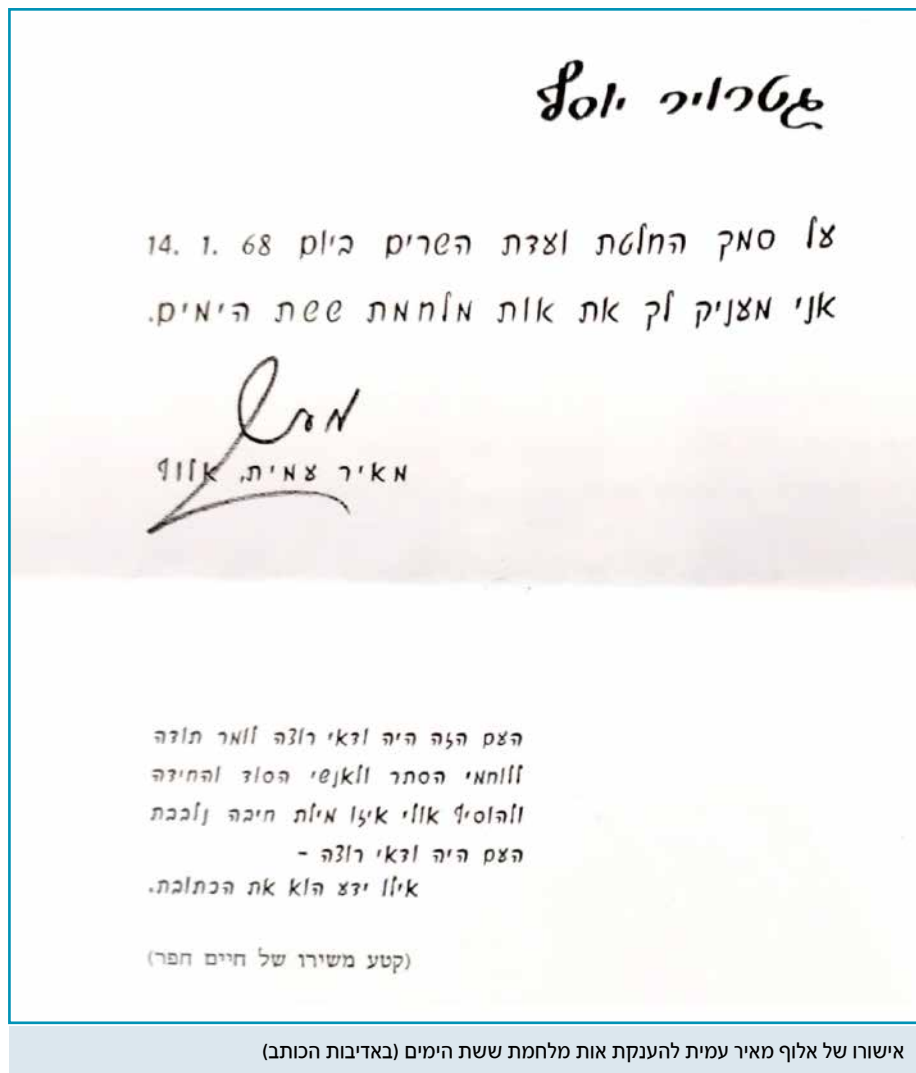 גטרויר יוסף
על סמך החלטת ועדת השרים ביום 14. 1. 68
אני מעניק לך את אות מלחמת ששת הימים.
מאיר עמית, אלוף
העם הזה היה ודאי רוצה לומר תודה
ללוחמי הסתר ולאנשי הסוד והחידה
ולהוסיף אולי איזו מילת חיבה נלבבת
העם היה ודאי רוצה -
אילו ידע הוא את הכתובת.
(קטע משירו של חיים חפר)
אישורו של אלוף מאיר עמית להענקת אות מלחמת ששת הימים (באדיבות הכותב)